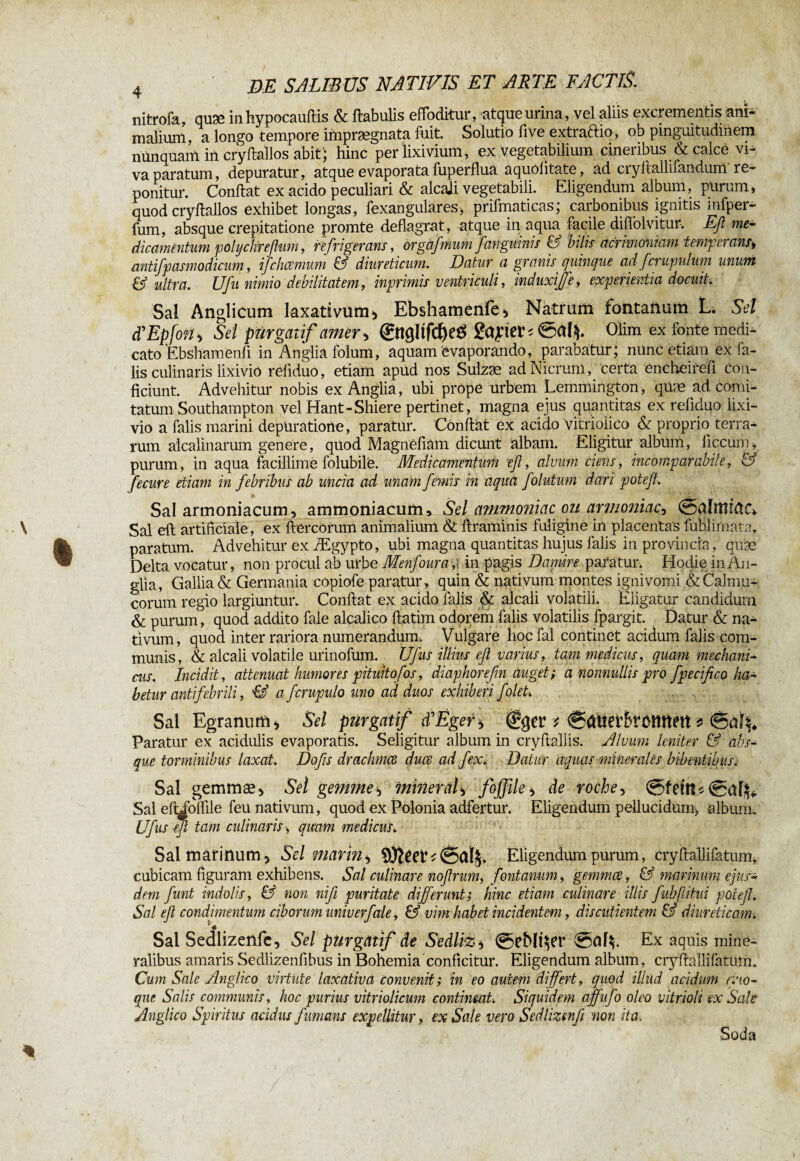 4
DE SALIBUS NATIVIS ET ARTE FACTIS.
nitroſa, quæ in hypocauſtis & ſtabulis effoditur, atque urina, vel aliis excrementis ani-
malium, a longo tempore imprægnata fuit. Solutio ſive extractio, ob pinguitudinem
nunquam in cryſtallos abit; hinc per lixivium, ex vegetabilium cineribus & calce vi-
va paratum, depuratur, atque evaporata ſuperflua aquoſitate, ad cryſtalliſandum re-
ponitur. Conſtat ex acido peculiari & alcali vegetabili. Eligendum album, purum,
quod cryſtallos exhibet longas, ſexangulares, priſmaticas; carbonibus ignitis inſper-
ſum, absque crepitatione promte deflagrat, atque in aqua facile diſſolvitur. Eſt me-
dicamentum polychreſtum, refrigerans, orgaſmum ſanguinis & bilis acrimoniam temperans,
antiſpasmodicum, iſchæmum & diureticum. Datur a granis quinque ad ſcrupulum unum
& ultra. Uſu nimio debilitatem, inprimis ventriculi, induxiſſe, experientia docuit.
Sal Anglicum laxativum, Ebshamenſe, Natrum fontanum L. Sel
d'Epſon, Sel purgatif amer, Engliſches Laxier-Salz. Olim ex fonte medi-
cato Ebshamenſi in Anglia ſolum, aquam evaporando, parabatur; nunc etiam ex ſa-
lis culinaris lixivio reſiduo, etiam apud nos Sulzæ ad Nicrum, certa encheireſi con-
ficiunt. Advehitur nobis ex Anglia, ubi prope urbem Lemmington, quæ ad comi-
tatum Southampton vel Hant-Shiere pertinet, magna ejus quantitas ex reſiduo lixi-
vio a ſalis marini depuratione, paratur. Conſtat ex acido vitriolico & proprio terra-
rum alcalinarum genere, quod Magneſiam dicunt albam. Eligitur album, ſiccum,
purum, in aqua facillime ſolubile. Medicamentum eſt, alvum ciens, incomparabile, &
ſecure etiam in febribus ab uncia ad unam ſemis in aqua ſolutum dari poteſt.
Sal armoniacum, ammoniacum, Sel ammoniac ou armoniac, Salmiac.
Sal eſt artificiale, ex ſtercorum animalium & ſtraminis fuligine in placentas ſublimata,
paratum. Advehitur ex Ægypto, ubi magna quantitas hujus ſalis in provincia, quæ
Delta vocatur, non procul ab urbe Menſoura, in pagis Damire paratur. Hodie in An-
glia, Gallia & Germania copioſe paratur, quin & nativum montes ignivomi & Calmu-
corum regio largiuntur. Conſtat ex acido ſalis & alcali volatili. Eligatur candidum
& purum, quod addito ſale alcalico ſtatim odorem ſalis volatilis ſpargit. Datur & na-
tivum, quod inter rariora numerandum. Vulgare hoc ſal continet acidum ſalis com-
munis, & alcali volatile urinoſum. Uſus illius eſt varius, tam medicus, quam mechani-
cus. Incidit, attenuat humores pituitoſos, diaphoreſin auget; a nonnullis pro ſpecifico ha-
betur antifebrili, & a ſcrupulo uno ad duos exhiberi ſolet.
Sal Egranum, Sel purgatif d'Eger, Eger-Sauerbronnen-Salz.
Paratur ex acidulis evaporatis. Seligitur album in cryſtallis. Alvum leniter & abs-
que torminibus laxat. Doſis drachmæ duæ ad ſex. Datur aquas minerales bibentibus.
Sal gemmæ, Sel gemme, mineral, foſſile, de roche, Stein-Salz.
Sal eſt foſſile ſeu nativum, quod ex Polonia adfertur. Eligendum pellucidum, album.
Uſus eſt tam culinaris, quam medicus.
Sal marinum, Sel marin, Meer-Salz. Eligendum purum, cryſtalliſatum,
cubicam figuram exhibens. Sal culinare noſtrum, fontanum, gemmæ, & marinum ejus-
dem ſunt indolis, & non niſi puritate differunt; hinc etiam culinare illis ſubſtitui poteſt.
Sal eſt condimentum ciborum univerſale, & vim habet incidentem, discutientem & diureticam.
Sal Sedlizenſe, Sel purgatif de Sedliz, Sedlitzer Salz. Ex aquis mine-
ralibus amaris Sedlizenſibus in Bohemia conficitur. Eligendum album, cryſtalliſatum.
Cum Sale Anglico virtute laxativa convenit; in eo autem differt, quod illud acidum quo-
que Salis communis, hoc purius vitriolicum contineat. Siquidem affuſo oleo vitrioli ex Sale
Anglico Spiritus acidus fumans expellitur, ex Sale vero Sedlizenſi non ita.
Soda